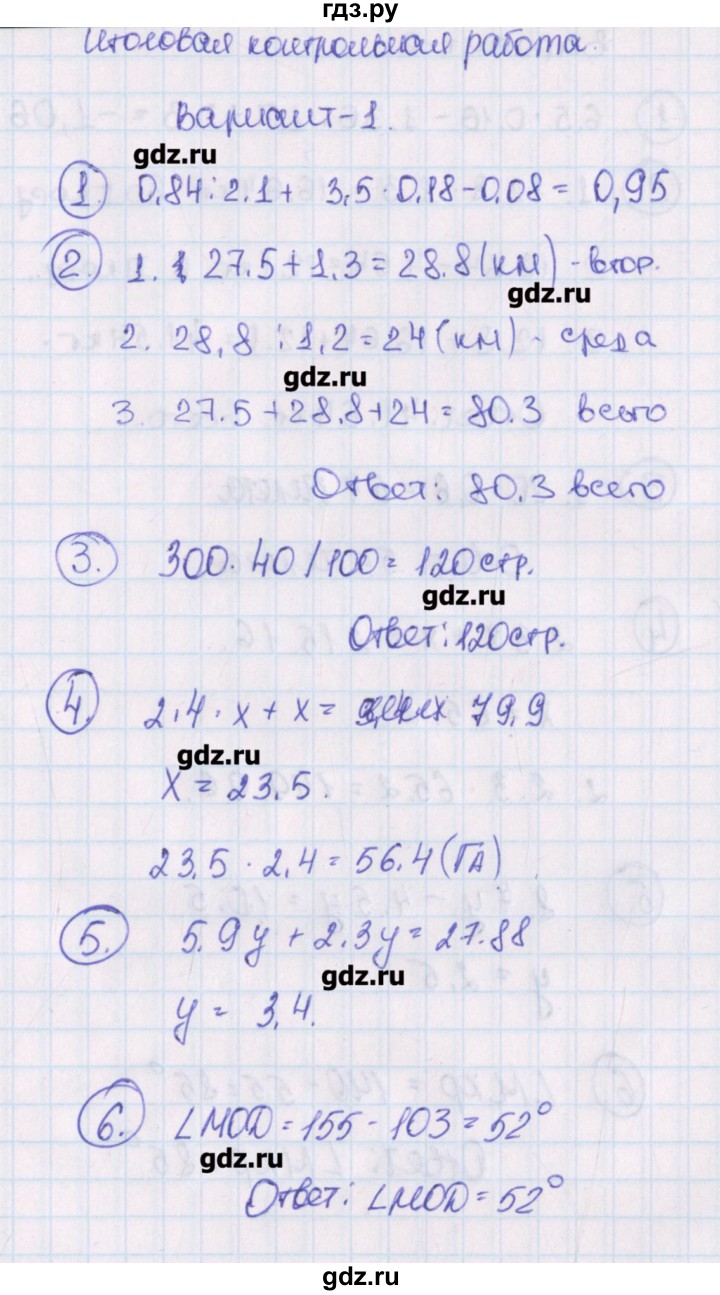 гдз.ру
Итоговая контрольная работа.
Вариант-1.
gdz.ru
1. 0,84:2.1+ 3,5·0,18-0,08= 0,95
2. 1. 27.5+1.3=28.8(км) - втор.
gdz.ru
2. 28,8 : 1,2=24(км) - среда
gdz.ru
3. 27.5+28.8+24=80.3 всего
Ответ: 80.3 всего
3. 300·40/100=120стр.
gdz.ru
Ответ:120стр.
4. 2,4·x+x= 79,9
gdz.ru
x=23,5.
23,5·2,4=56.4(га)
5. 5.9y+2.3y=27.88
gdz.ru
y= 3,4.
6. ∠MOD=155-103=52°
gdz.ru
Ответ: ∠MOD=52°
gdz.ru